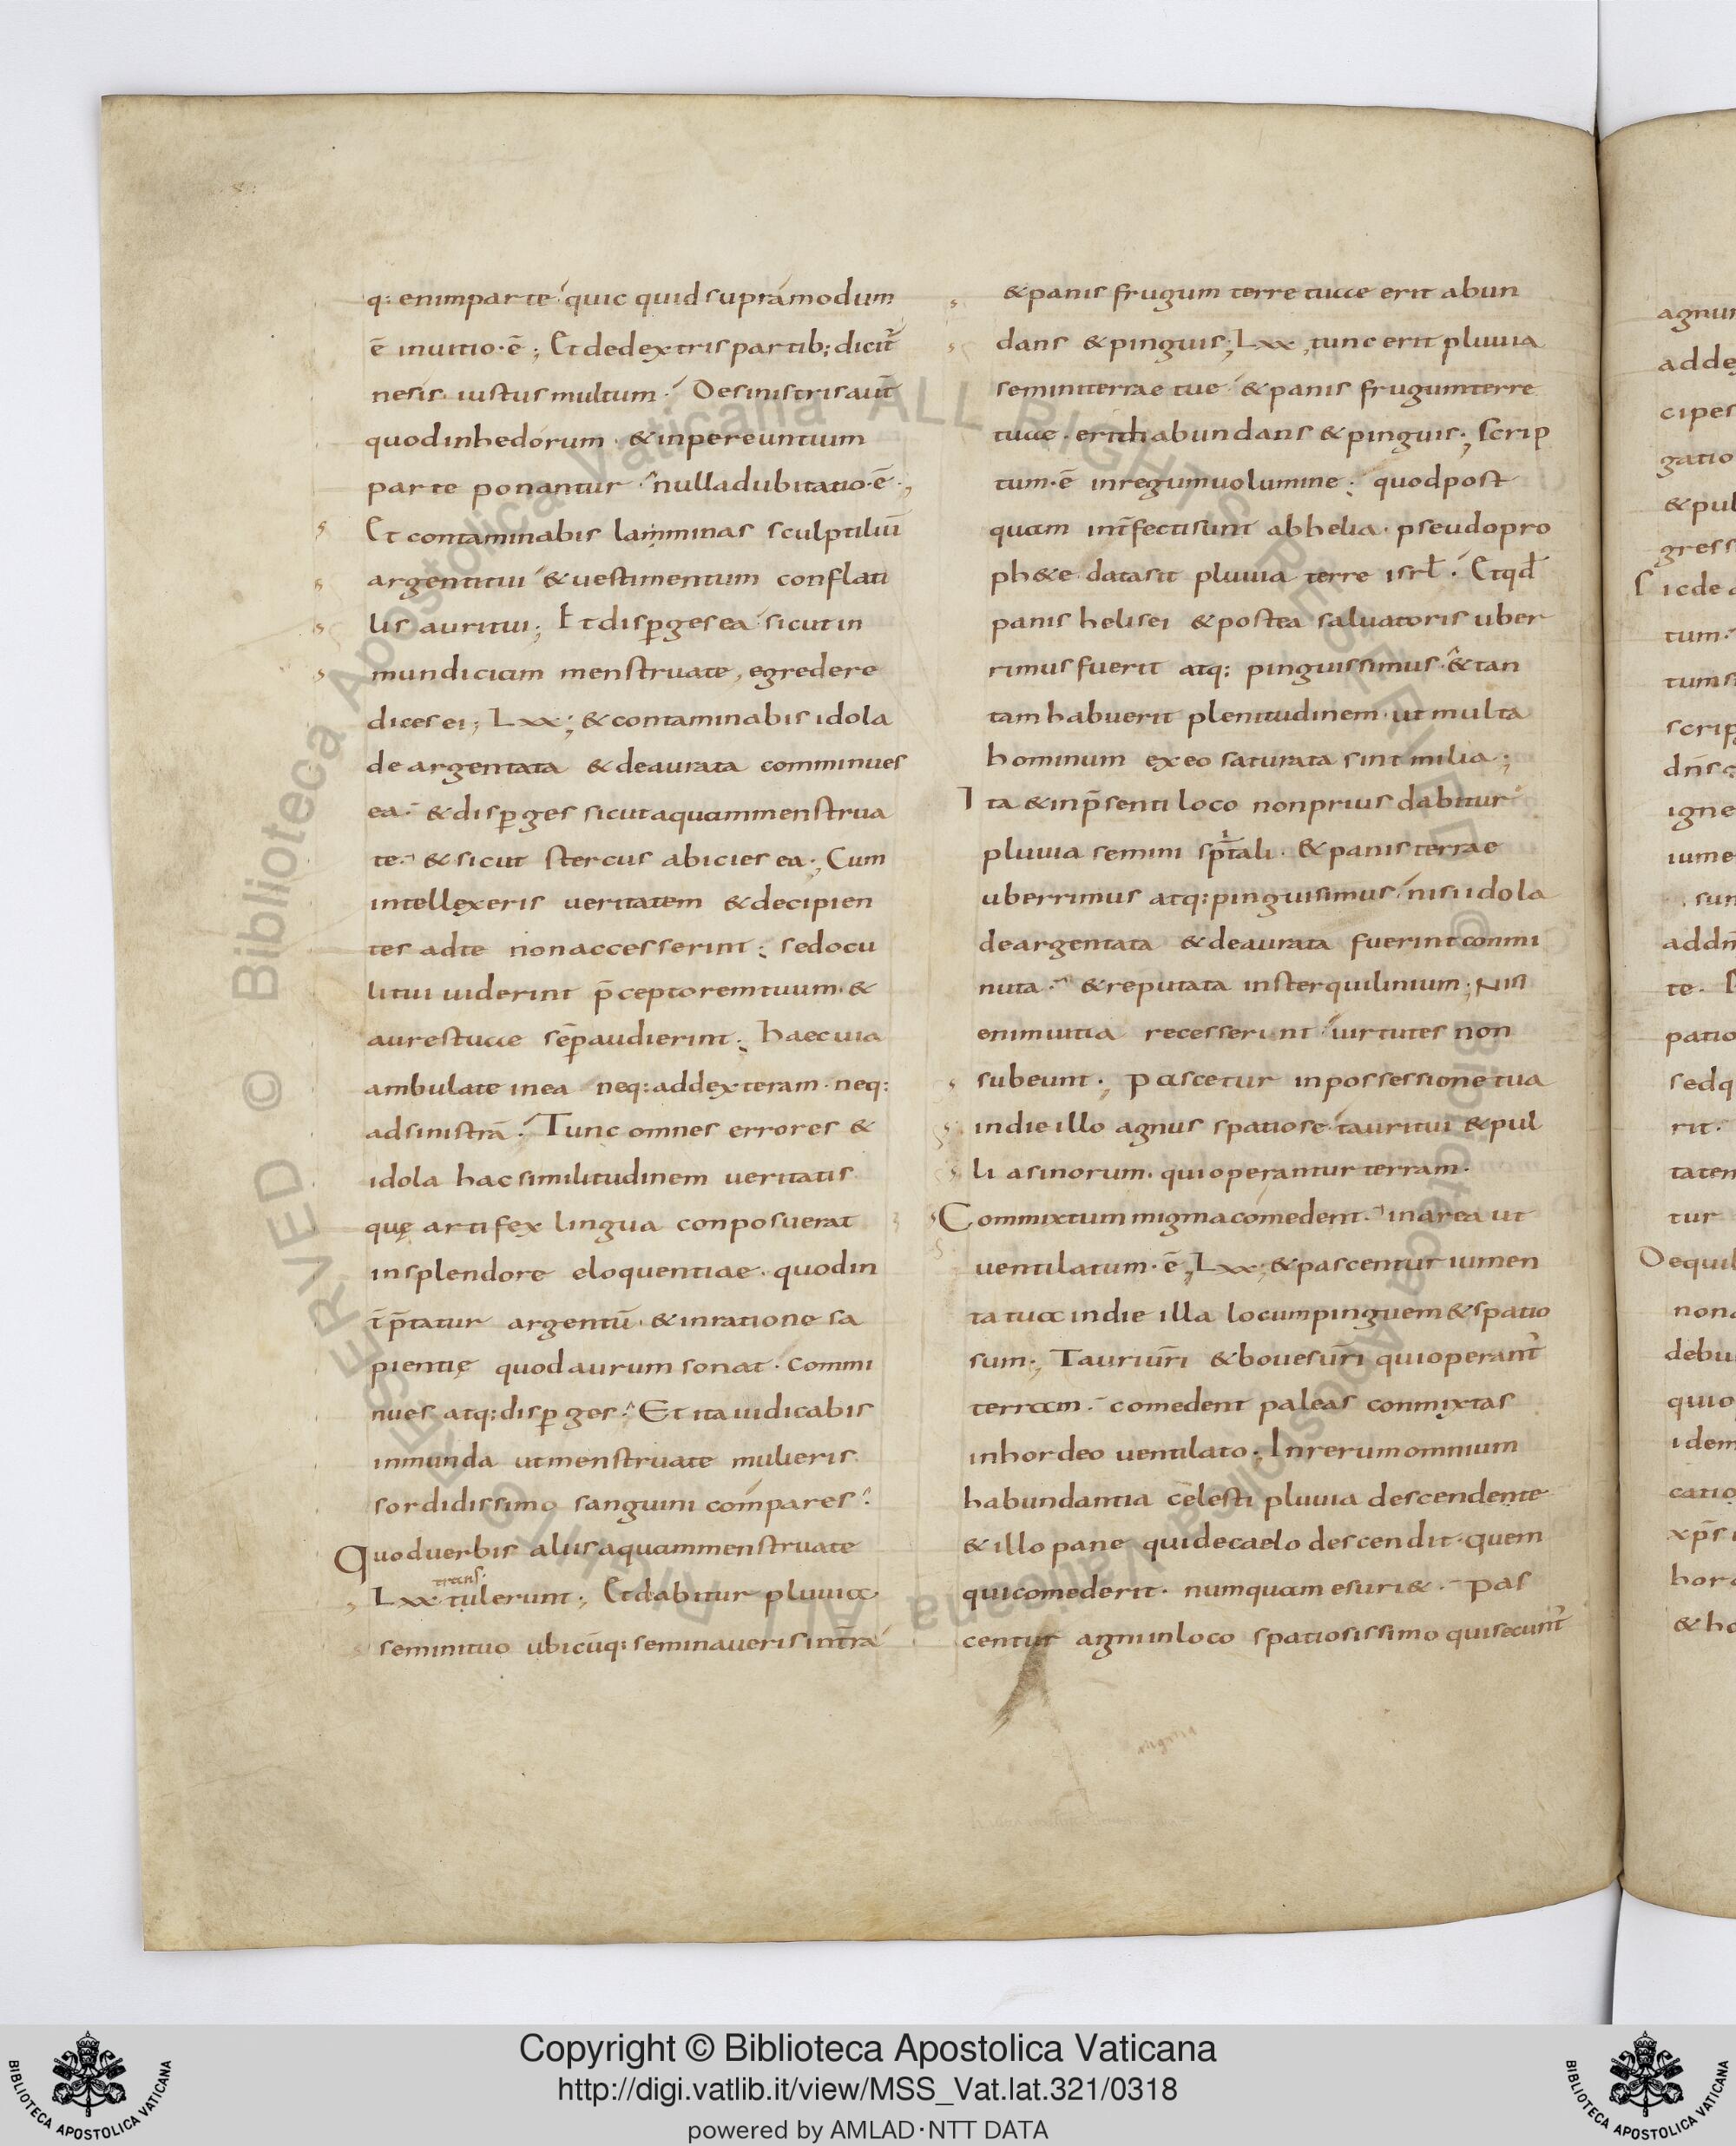 q: enimparte quic quid supramodum
ē inuitio·ē; Et dedextris partib: dicit̄
nesis iustus multum· Desinistris aut̄
quodinhedorum· & inpereuntium
parte ponantur nulladubitatio·ē·,
Et contaminabis lamminas sculptiliū
argentitui & uestimentum conflati
lis auritui; Et disp̄gesea sicut in
mundiciam menstruate, egredere
dices ei; Lxx; & contaminabis idola
deargentata & deaurata comminues
ea· & disp̄ges sicutaquammenstrua
te· & sicut stercus abicies ea·; Cum
intellexeris ueritatem & decipien
tes adte nonaccesserint; sedocu
litui uiderint p̄ceptoremtuum· &
aurestuae sēp audierint; haecuia
ambulate inea neq: addexteram· neq:
adsinistrā· Tunc omnes errores &
idola hacsimilitudinem ueritatis
quę artifex lingua conposuerat
insplendore eloquentiae· quodin
t̄p̄tatur argentū· & inratione sa
pientię quodaurum sonat· commi
nues atq: disp̄ges· Et itaiudicabis
inmunda utmenstruate mulieris
sordidissimo sanguini compares·
Quoduerbis aliis aquammenstruate
trans·
Lxx tulerunt·; Et dabitur pluuia
seminituo ubicūq: seminaueris inter̄ra
& panis frugum terre tuae erit abun
dans & pinguis; Lxx, tunc erit pluuia
seminiterrae tue & panis frugumterre
tuae· erith abundans & pinguis·; scrip
tum·ē inregumuolumine; quodpost
quam int̄fectisunt abhelia· pseudopro
ph&e· datasit pluuia terre isrl̄· Etqd̄
panis helisei & postea saluatoris uber
rimus fuerit atq: pinguissimus & tan
tam habuerit plenitudinem· ut multa
hominum exeo saturata sint milia;
Ita & inp̄senti loco nonprius dabitur
pluuia semini sp̄itali· & panis terrae
uberrimus atq: pinguisimus nisi idola
deargentata & deaurata fuerint conmi
nuta· & reputata insterquilinium; Nisi
enimuitia recesserint uirtutes non
subeunt·; Pascetur inpossessione tua
indie illo agnus spatiose tauritui & pul
li asinorum· qui operantur terram·
Commixtum migma comedent· inarea ut
uentilatum·ē; Lxx; & pascentur iumen
ta tua indie illa locumpinguem & spatio
sum·; Tauriur̄i & bouesur̄i quioperant̄
terram· comedent paleas conmixtas
inhordeo uentilato· Inrerumomnium
habundantia celesti pluuia descendente
& illo pane quidecaelo descendit· quem
quicomederit· numquam esuri&· Pas
centur agniinloco spatiosissimo quisecunt̄
agnu
adde
cipes
gatio
& pul
gress
Sicde
tum·
tums
scrip
dn̄s
igne
iume
sun
addn̄
te·
patio
sedq
rit·
taten
tur
Dequi
non
debu
quio
idem
catio
xp̄s
hor
& ho
Copyright © Biblioteca Apostolica Vaticana
http://digi.vatlib.it/view/MSS_Vat.lat.321/0318
powered by AMLAD·NTT DATA
BIBLIOTECA APOSTOLICA VATICANA
BIBLIOTECA APOSTOLICA VATICANA
© Biblioteca Apostolica Vaticana ALL RIGHTS RESERVED © Biblioteca Apostolica Vaticana ALL RIGHTS RESERVED